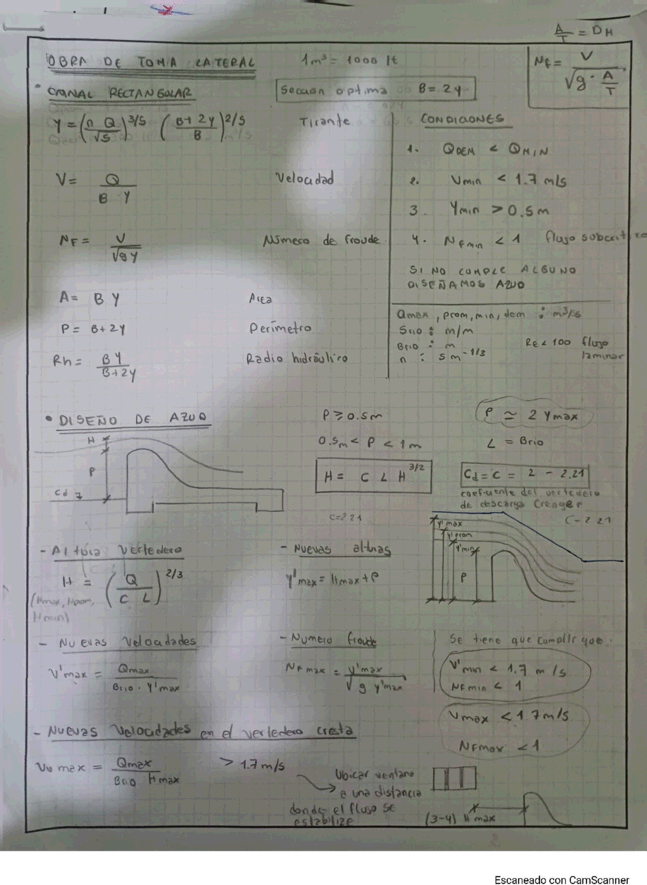 A/T = DH
OBRA DE TOMA LATERAL
1m³ = 1000 lt
NF = V / √(g · A/T)
• CANAL RECTANGULAR
Sección optima B = 2y
Y = (n Q / √S)^3/5 (B + 2Y / B)^2/5 Tirante
V = Q / B Y Velocidad
NF = V / √gy Número de froude
A = B Y Area
P = B + 2Y Perímetro
Rh = BY / B+2Y Radio hidráulico
CONDICIONES
1. QDEM < QMIN
2. Vmin < 1.7 m/s
3. Ymin > 0.5 m
4. NFmin < 1 flujo subcritico
SI NO CUMPLE ALGUNO
DISEÑAMOS AZUD
Qmax, prom, min, dem : m³/s
Srio : m/m
Brio : m
n : s m^-1/3
Re < 100 flujo
laminar
• DISEÑO DE AZUD
H
P
Cd
P ≥ 0.5m
0.5m < P < 1m
H = C L H^3/2
C = 2.21
P ≃ 2 Ymax
L = Brio
Cd = C = 2 - 2.21
coeficiente del vertedero
de descarga Creager
C = 2.21
y'max
y'prom
y'min
P
- Altura Vertedero
H = (Q / C L)^2/3
(Hmax, Hprom,
Hmin)
- Nuevas alturas
y'max = Hmax + P
- Nuevas Velocidades
V'max = Qmax / Brio · Y'max
- Numero froude
NFmax = V'max / √g y'max
Se tiene que cumplir que:
V'min < 1.7 m/s
NFmin < 1
Vmax < 1.7 m/s
NFmax < 1
- Nuevas Velocidades en el vertedero cresta
Vv max = Qmax / Brio hmax > 1.7 m/s
Ubicar ventana
a una distancia
donde el flujo se
estabilize
(3-4) Hmax
Escaneado con CamScanner